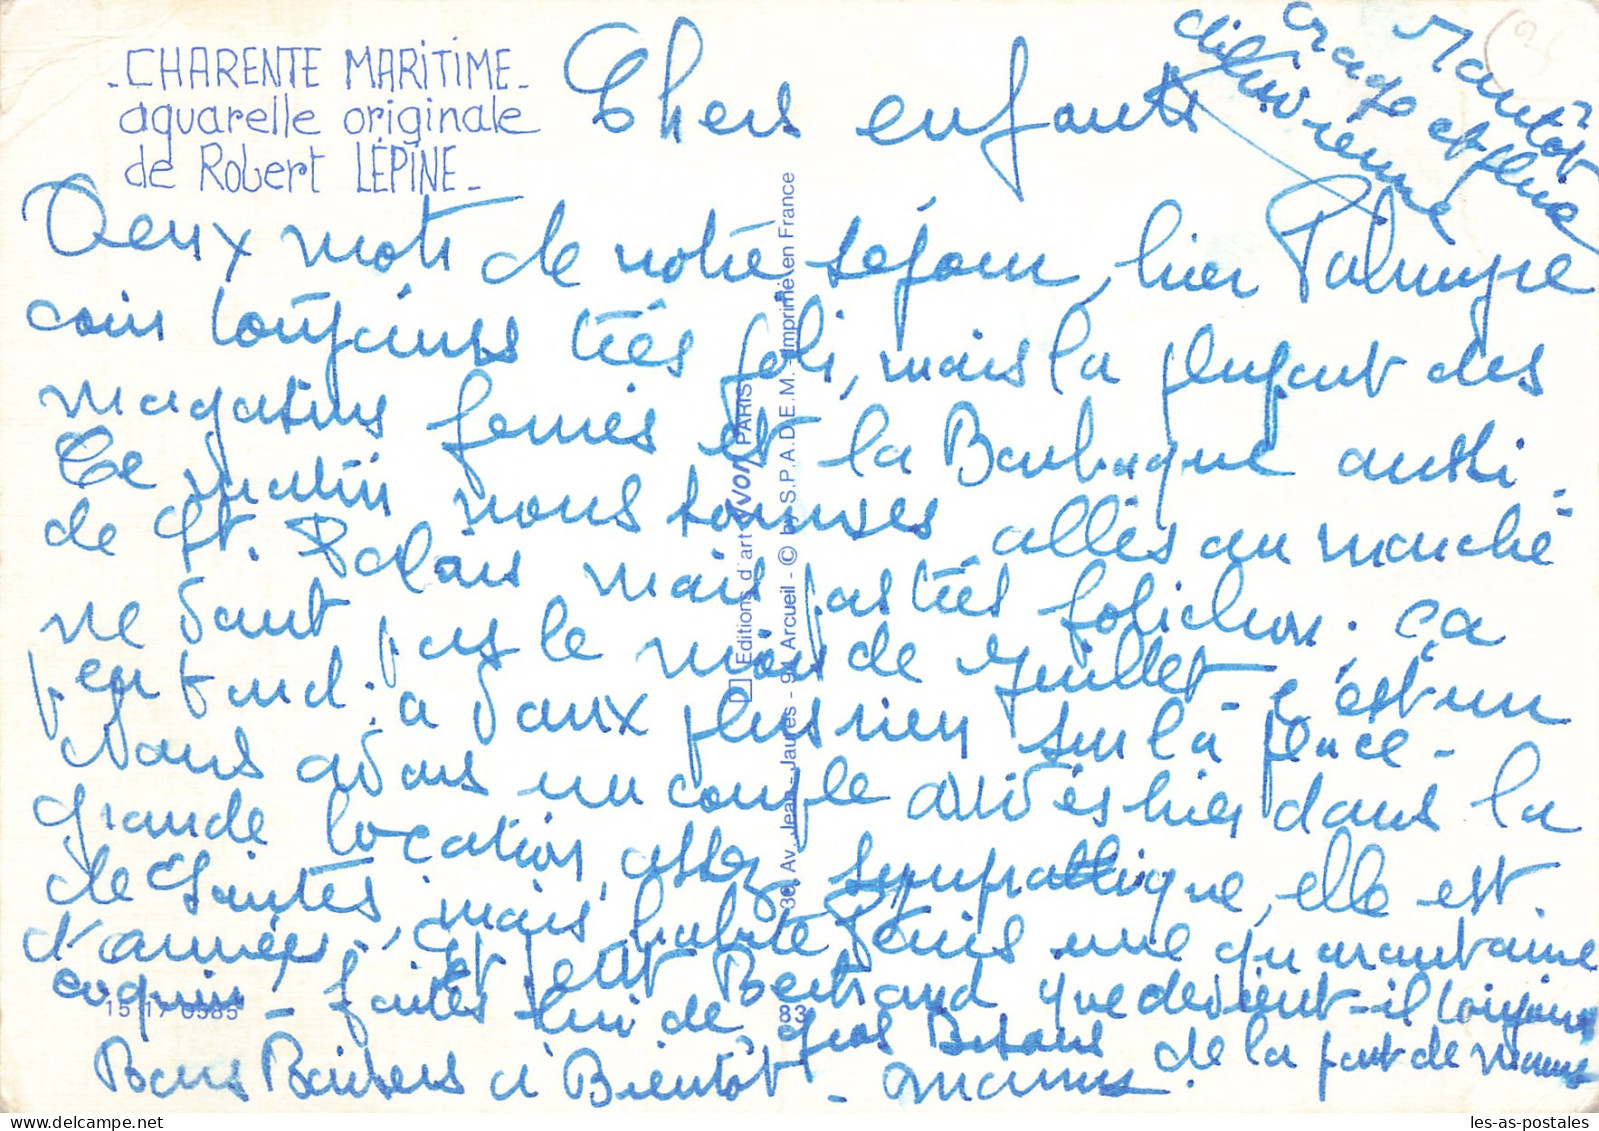 -CHARENTE MARITIME-
aquarelle originale
de Robert LÉPINE-
Chers enfants
Deux mots de notre séjour, hier Palmyre
coin toujours très joli, mais la plupart des
magasins fermés et la Barbaque aussi.
Ce matin nous sommes allés au marché
de St. Palais mais pas très folichon. ça
ne vaut pas le mois de Juillet - c'est un
peu tend. a vaux plus rien sur la place -
Nous avons un couple arrivés hier dans la
grande location, assez sympathique, elle est
de Saintes, mais habite Paris une quarantaine
d'années. Et petit Bertrand que devient-il toujours
coquin - faites lui de gros Bisous de la part de mamus
Bons Baisers à Bientôt - mamus.
Mantôt
orage et pluie
diluvienne
Editions d'art YVON, PARIS
30, Av. Jean-Jaurès - 94 Arcueil - © by S.P.A.D.E.M. - Imprimé en France
15 17 0585
83
les-as-postales